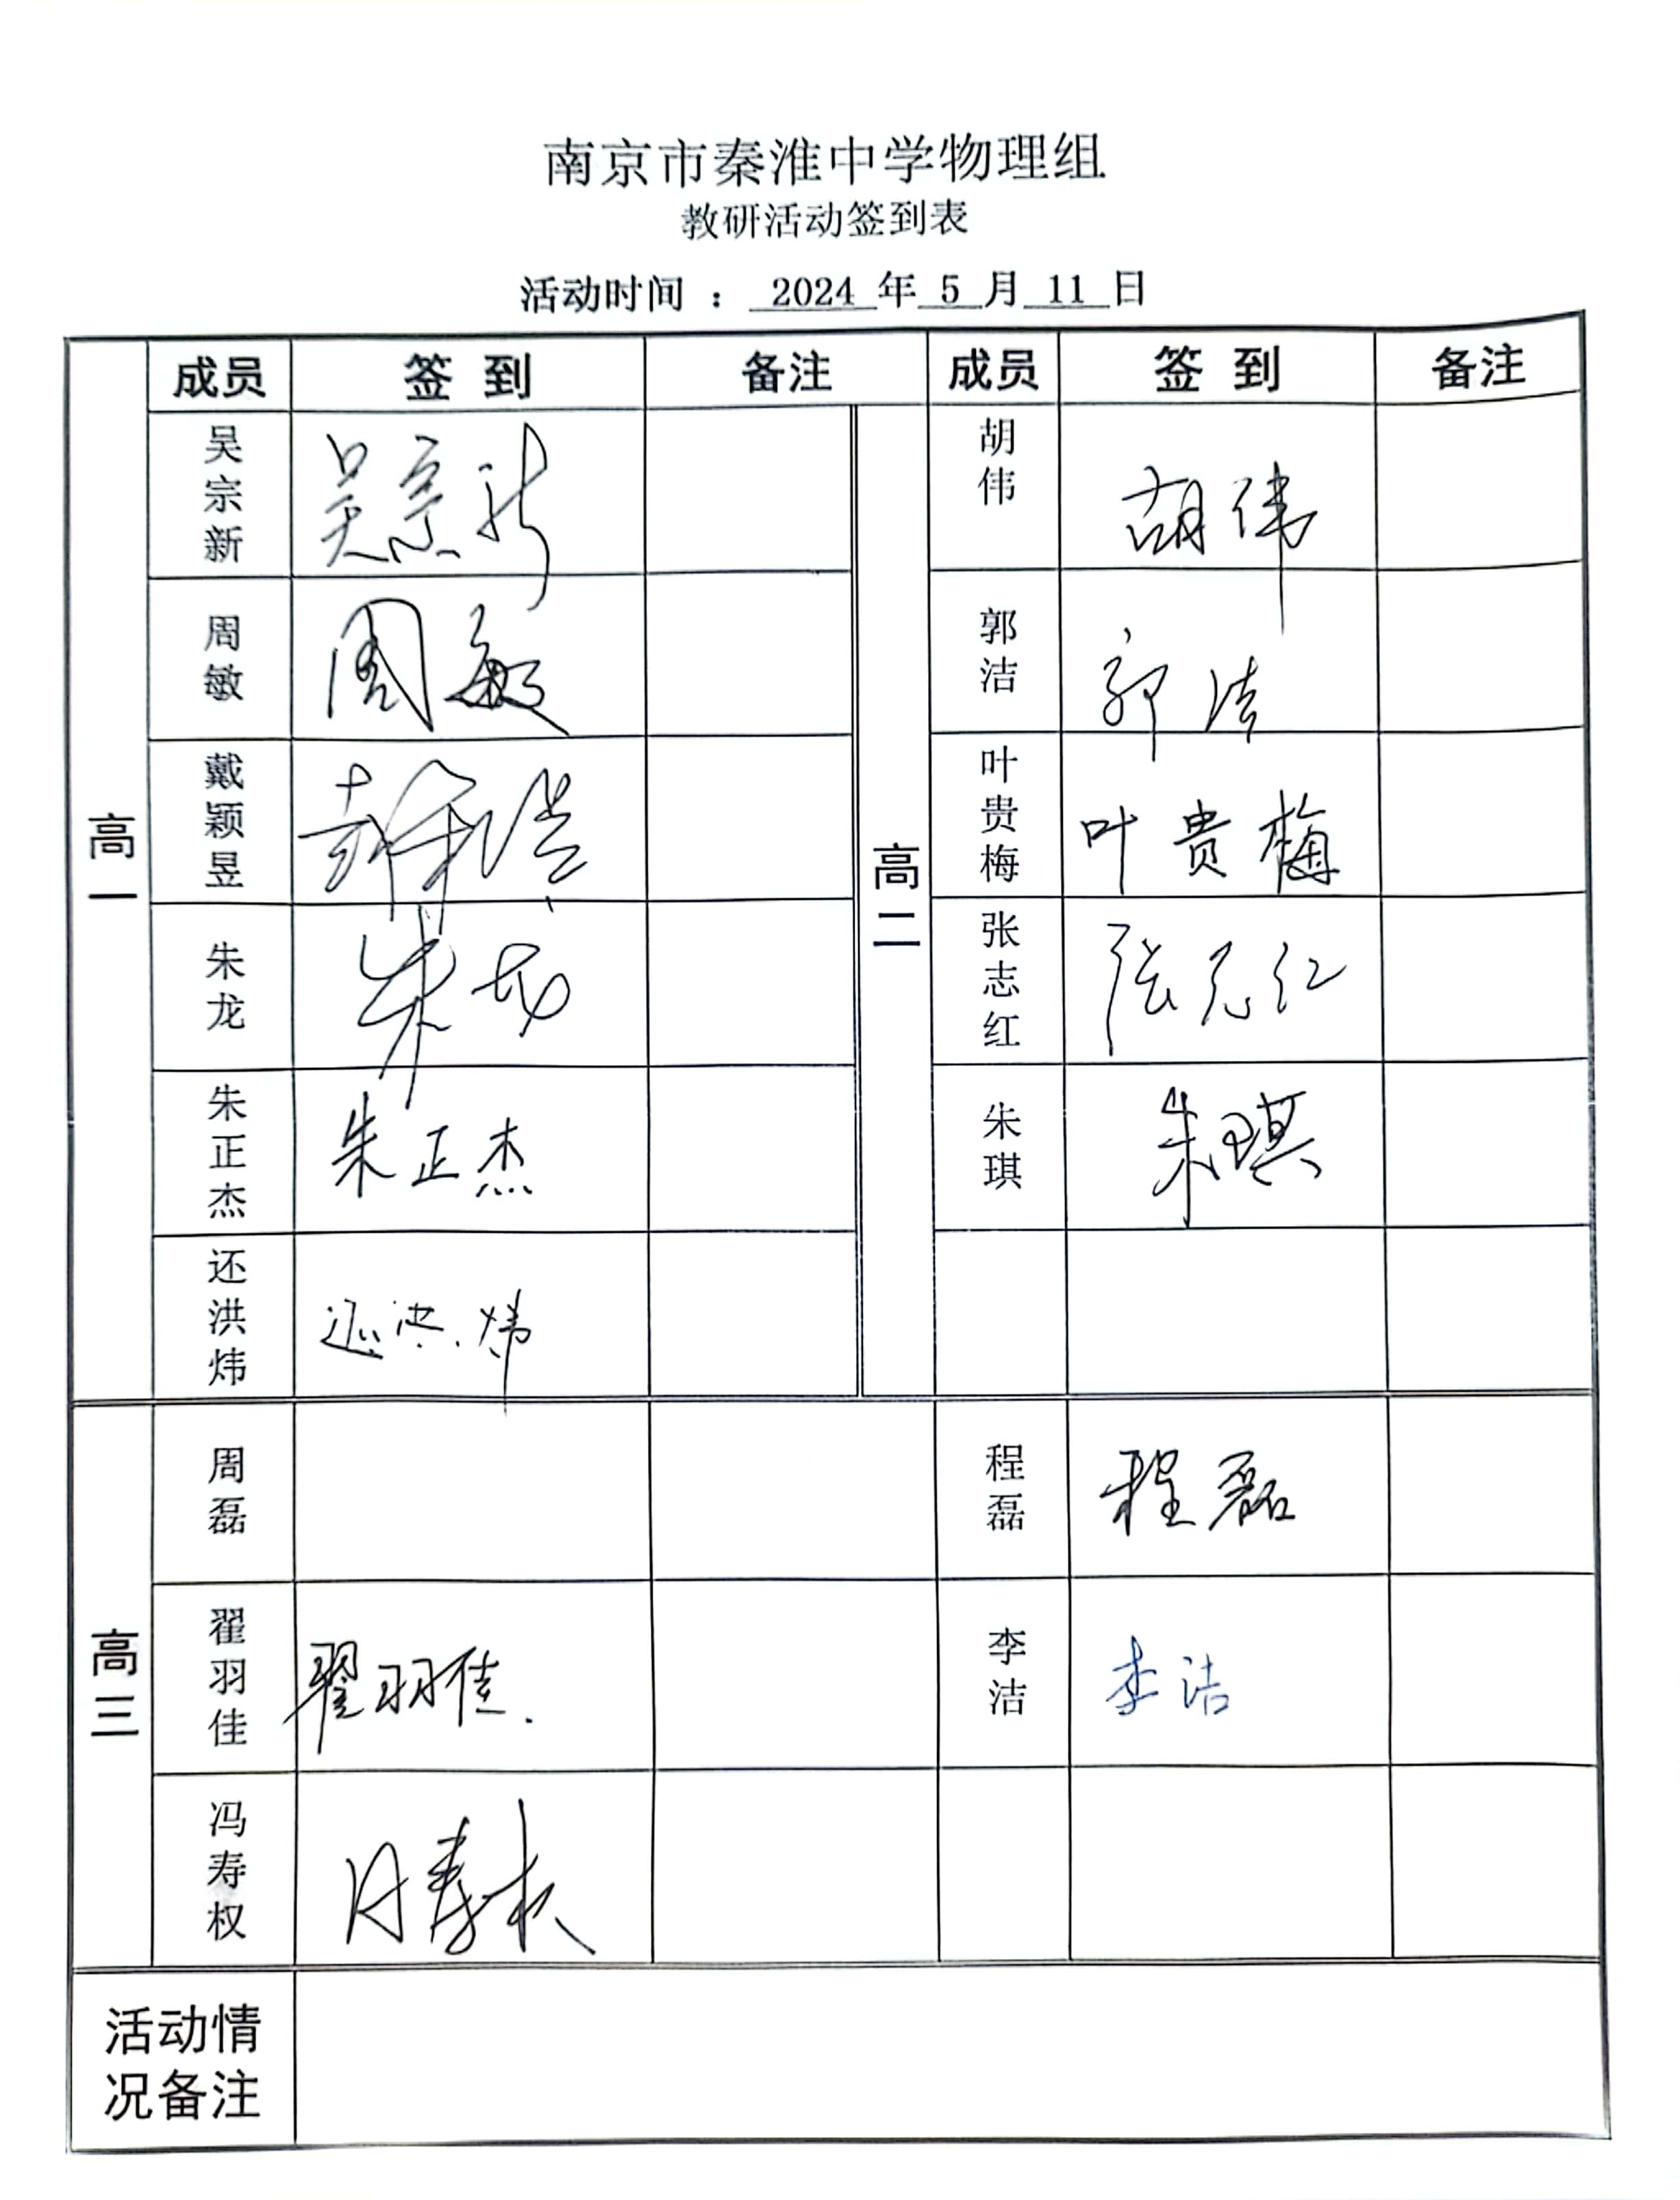 南京市秦淮中学物理组
教研活动签到表
活动时间 : 2024 年 5 月 11 日
成员 签 到 备注 成员 签 到 备注
高一
吴宗新 吴宗新
周敏 周敏
戴颖昱
朱龙 朱龙
朱正杰 朱正杰
还洪炜 还洪炜
高二
胡伟 胡伟
郭洁 郭洁
叶贵梅 叶贵梅
张志红 张志红
朱琪 朱琪
高三
周磊
程磊 程磊
翟羽佳 翟羽佳.
李洁 李洁
冯寿权 冯寿权
活动情
况备注